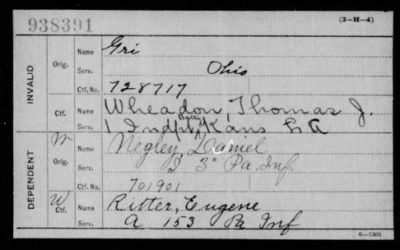 938391
(3-H-4)
INVALID
Orig. Name Gri
Serv. Ohio
Ctf. No. 728717
Ctf. Name Wheadon, Thomas J.
Serv. 1 Indpt Batty Kans L A
DEPENDENT
M Orig. Name Negley, Daniel
Serv. I 3" Pa Inf.
Ctf. No. 701901
W Ctf. Name Ritter, Eugene
Serv. A 153 Pa Inf
6-1305